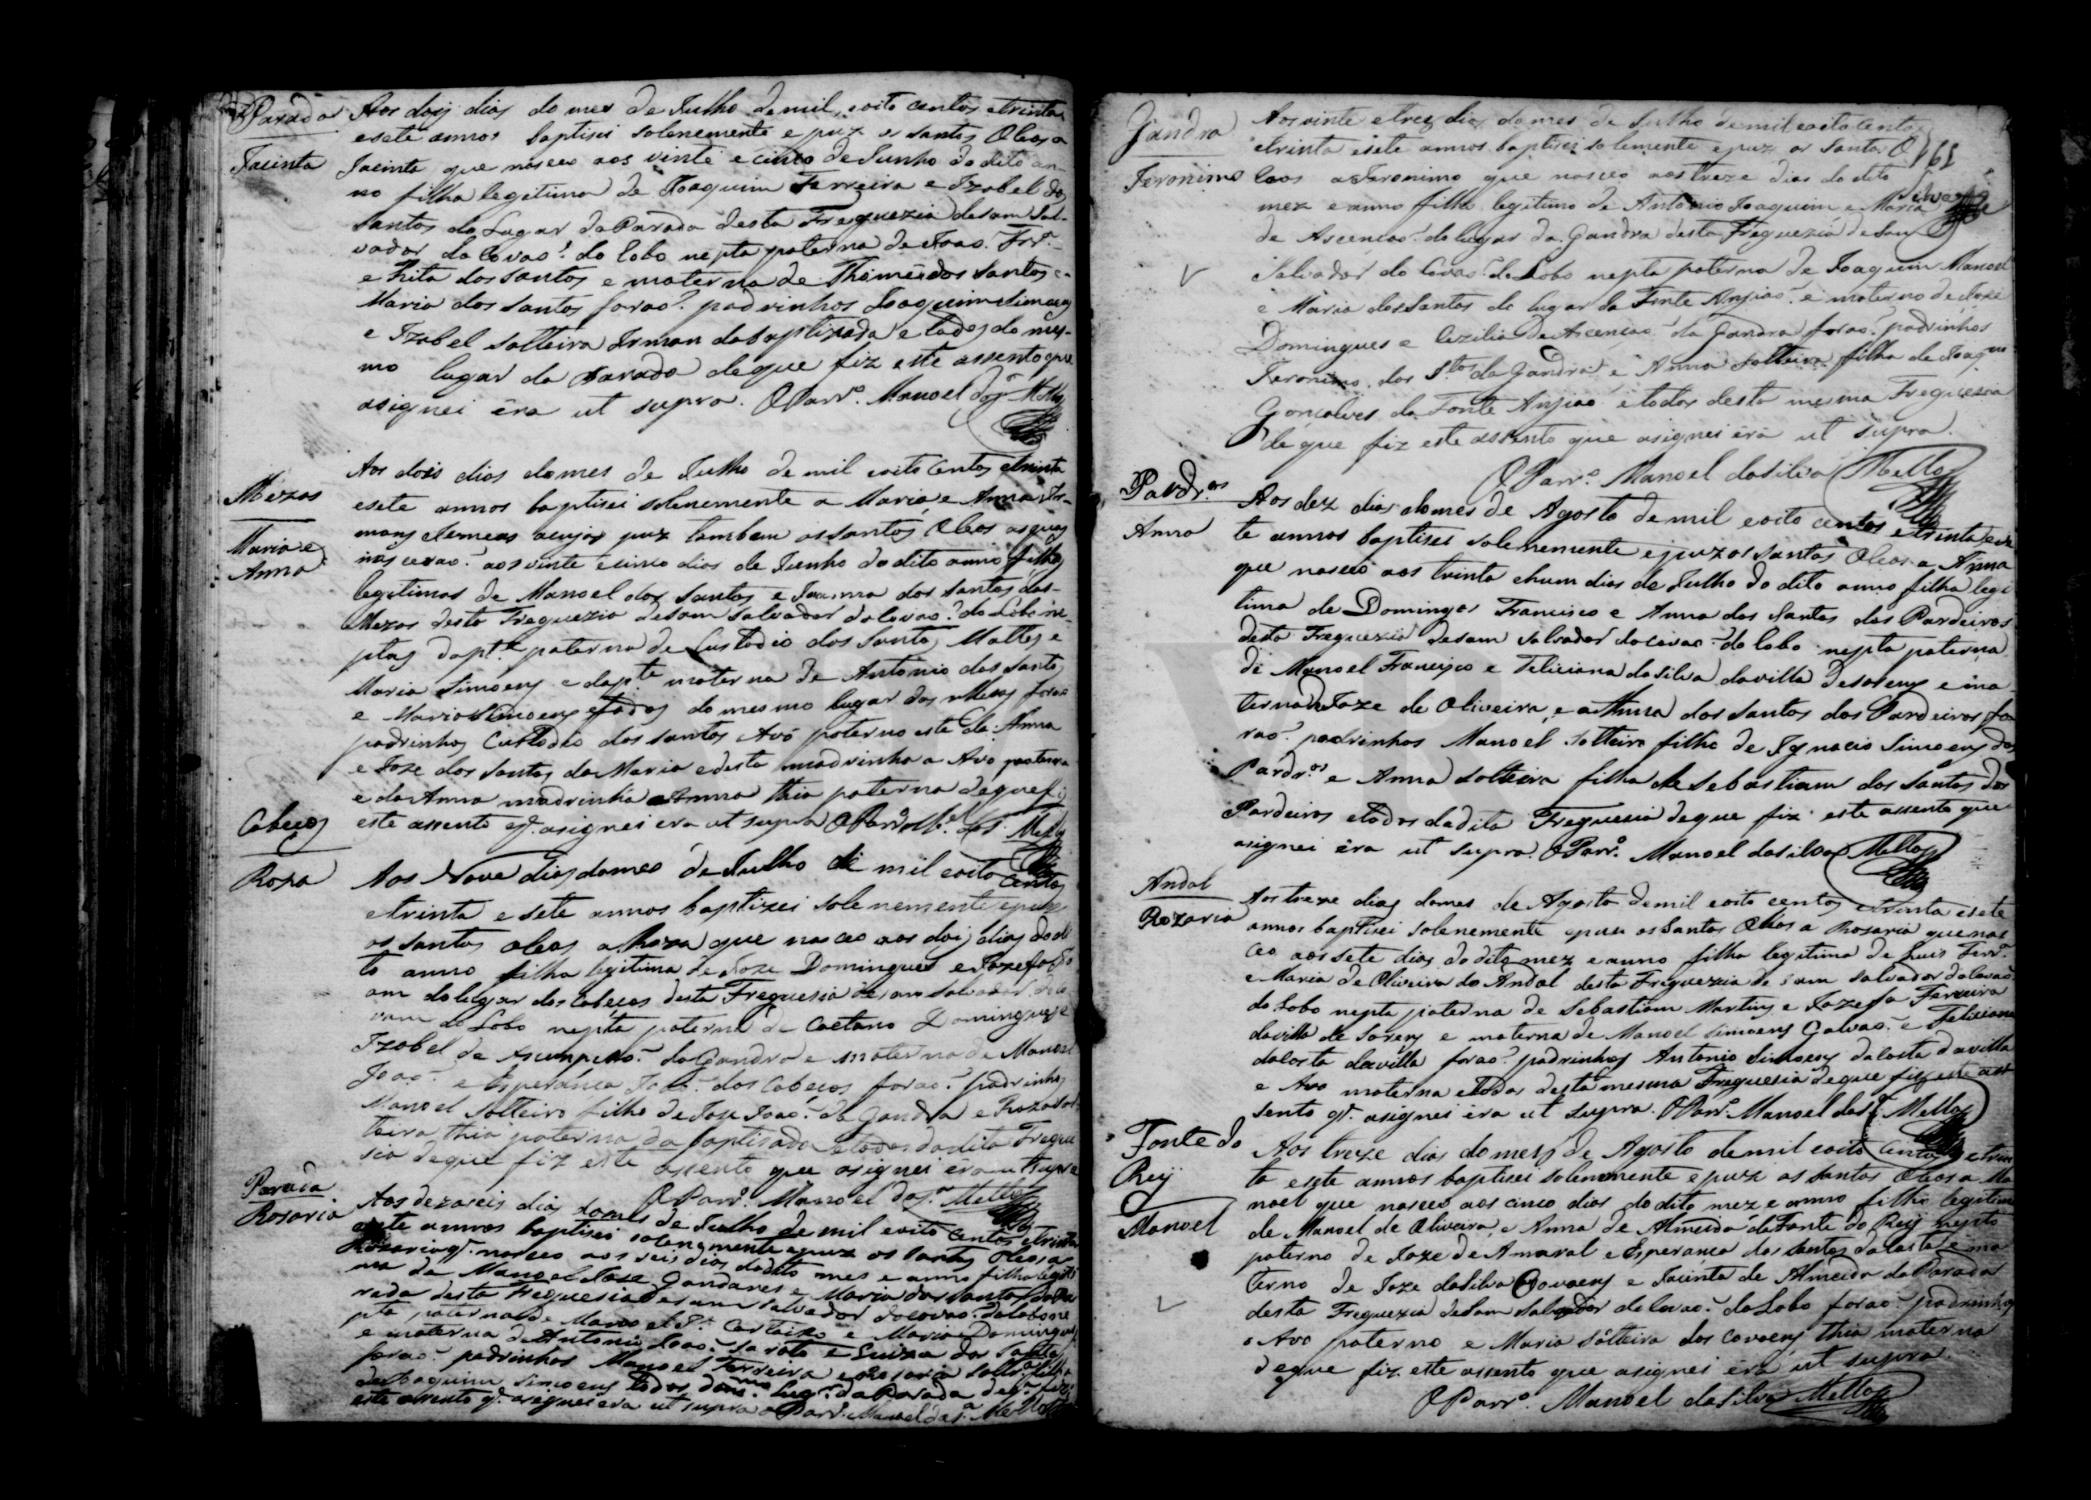 Parada
Jacinta
Aos dois dias do mes de Julho de mil, e oito centos e trinta
e sete annos baptisei solenemente e puz os santos Oleos a
Jacinta que nasceo aos vinte e cinco de Junho do dito an-
no filha legitima de Joaquim Ferreira e Izabel dos
santos do Lugar da Parada desta Freguezia de sam Sal-
vador do Covao do lobo nepta paterna de Joao Ferr.ª
e Rita dos santos e materna de Thome dos santos e
Maria dos santos forao padrinhos Joaquim Simoens
e Izabel solteira Irman da baptizada e todos do mes-
mo lugar da Parada de que fiz este assento que
asignei êra ut supra. O Parr.º Manoel da S.ª Mello
Mezas
Maria e
Anna
Aos dois dias do mes de Julho de mil e oito centos e trinta
e sete annos baptisei solenemente a Maria e Anna Ir-
mans Gemeas a cujas puz tambem os santos Oleos as quais
nascerao aos vinte e cinco dias de Junho do dito anno filhas
legitimas de Manoel dos Santos e Joanna dos santos das
Mezas desta Freguezia de sam salvador do Covao do Lobo ne-
ptas da pt.e paterna de Custodio dos santos Mattos e
Maria Simoens e da pt.e materna de Antonio dos Santos
e Maria Simoens e todos do mesmo lugar das Mezas forao
padrinhos Custodio dos santos Avó paterno este da Anna
e Joze dos Santos da Maria e desta madrinha a Avo paterna
e da Anna madrinha Anna thia paterna de que fiz
este assento q. asignei era ut supra O Parr.º M.el da S.ª Mello
Cabeços
Roza
Aos Nove dias do mes de Julho de mil e oito centos
e trinta e sete annos baptizei solenemente e puz
os santos oleos a Roza que nasceo aos dois dias do di
to anno filha legitima de Joze Domingues e Jozefa Jo
am do lugar dos Cabeços desta Freguesia de sam salvador do Co
vam do Lobo nepta paterna de Caetano Domingues e
Izabel de Asumpçao da Gandra e materna de Manoel
Joao e Esperança Joao dos Cabeços forao padrinhos
Manoel solteiro filho de Joze Joao da Gandra e Roza sol
teira thia paterna da baptisada e todos da dita Fregue
sia de que fiz este assento que asignei era ut supra
O Parr.º Manoel da S.ª Mello
Parada
Rosaria
Aos dezaseis dias do mes de Julho de mil e oito centos e trinta
e sete annos baptisei solenemente e puz os santos Oleos a
Rosaria q. nasceo aos seis dias do dito mes e anno filha legiti
ma de Manoel Joze Gandares e Maria dos santos da Pa
rada desta Freguesia de sam salvador do Covao do lobo ne
pta paterna de Manoel e Maria Domingues
e materna de Antonio Joao e Luiza dos santos
forao padrinhos Manoel Ferreira e Rosaria solt.ra filha
de Joaquim Simoens todos do m.mo lug.r da Parada de q. fiz
este assento q. asignei era ut supra O Parr.º Manoel da S.ª Mello
Gandra
Jeronimo
191
Silva
Aos vinte e tres dias do mes de Julho de mil e oito centos
e trinta e sete annos baptisei solemente e puz os santos O
leos a Jeronimo que nasceo aos treze dias do dito
mez e anno filho legitimo de Antonio Joaquim e Maria
de Ascencao do lugar da Gandra desta Freguezia de sam
Salvador do Covao do Lobo nepto paterno de Joaquim Manoel
e Maria dos Santos do lugar da Fonte Anjiao e materno de Joze
Domingues e Cezilia de Ascencao da Gandra forao padrinhos
Jeronimo dos S.tos da Gandra e Anna solteira filha de Joaq.m
Gonçalves da Fonte Anjiao e todos desta mesma Freguezia
de que fiz este assento que asignei êra ut supra.
O Parr.º Manoel da Silva Mello
Pardr.os
Anna
Aos dez dias do mes de Agosto de mil e oito centos e trinta e se
te annos baptisei solenemente e puz os santos Oleos a Anna
que nasceo aos trinta e hum dias de Julho do dito anno filha legi
tima de Domingos Francisco e Anna dos Santos dos Pardeiros
desta Freguezia de sam salvador do covao do lobo nepta paterna
de Manoel Francisco e Feliciana da Silva da villa de Sorens e ma
terna de Joze de Oliveira e Anna dos Santos dos Pardeiros fo
rao padrinhos Manoel solteiro filho de Ignacio Simoens dos
Pardr.os e Anna solteira filha de Sebastiam dos santos dos
Pardeiros e todos da dita Freguesia de que fiz este assento que
asignei êra ut supra. O Parr.º Manoel da Silva Mello
Andal
Rozaria
Aos treze dias do mes de Agosto de mil e oito centos e trinta e sete
annos baptisei solenemente e puz os Santos Oleos a Rosaria que nas
ceo aos sete dias do dito mez e anno filha legitima de Luis Ferr.ª
e Maria de Oliveira do Andal desta Freguezia de sam salvador do Covao
do Lobo nepta paterna de Sebastiam Martins e Jozefa Ferreira
da villa de Sorens e materna de Manoel Simoens Galvao e Feliciana
da Costa da villa forao padrinhos Antonio Simoens da Costa da villa
e Avo materna e todos desta mesma Freguesia de que fiz este as
sento q. asignei êra ut supra. O Parr.º Manoel da S.ª Mello
Fonte do
Rey
Manoel
Aos treze dias do mes de Agosto de mil e oito centos e trin
ta e sete annos baptisei solenemente e puz os santos Oleos a Ma
noel que nasceo aos cinco dias do dito mez e anno filho legitimo
de Manoel de Oliveira e Anna de Almeida da Fonte do Rey nepto
paterno de Joze de Amaral e Esperança dos santos da Costa e ma
terno de Joze da Silva Covoens e Jacinta de Almeida da Parada
desta Freguezia de Sam Salvador do Covao do Lobo forao padrinhos
o Avo paterno e Maria solteira dos covoens thia materna
de que fiz este assento que asignei êra ut supra.
O Parr.º Manoel da Silva Mello